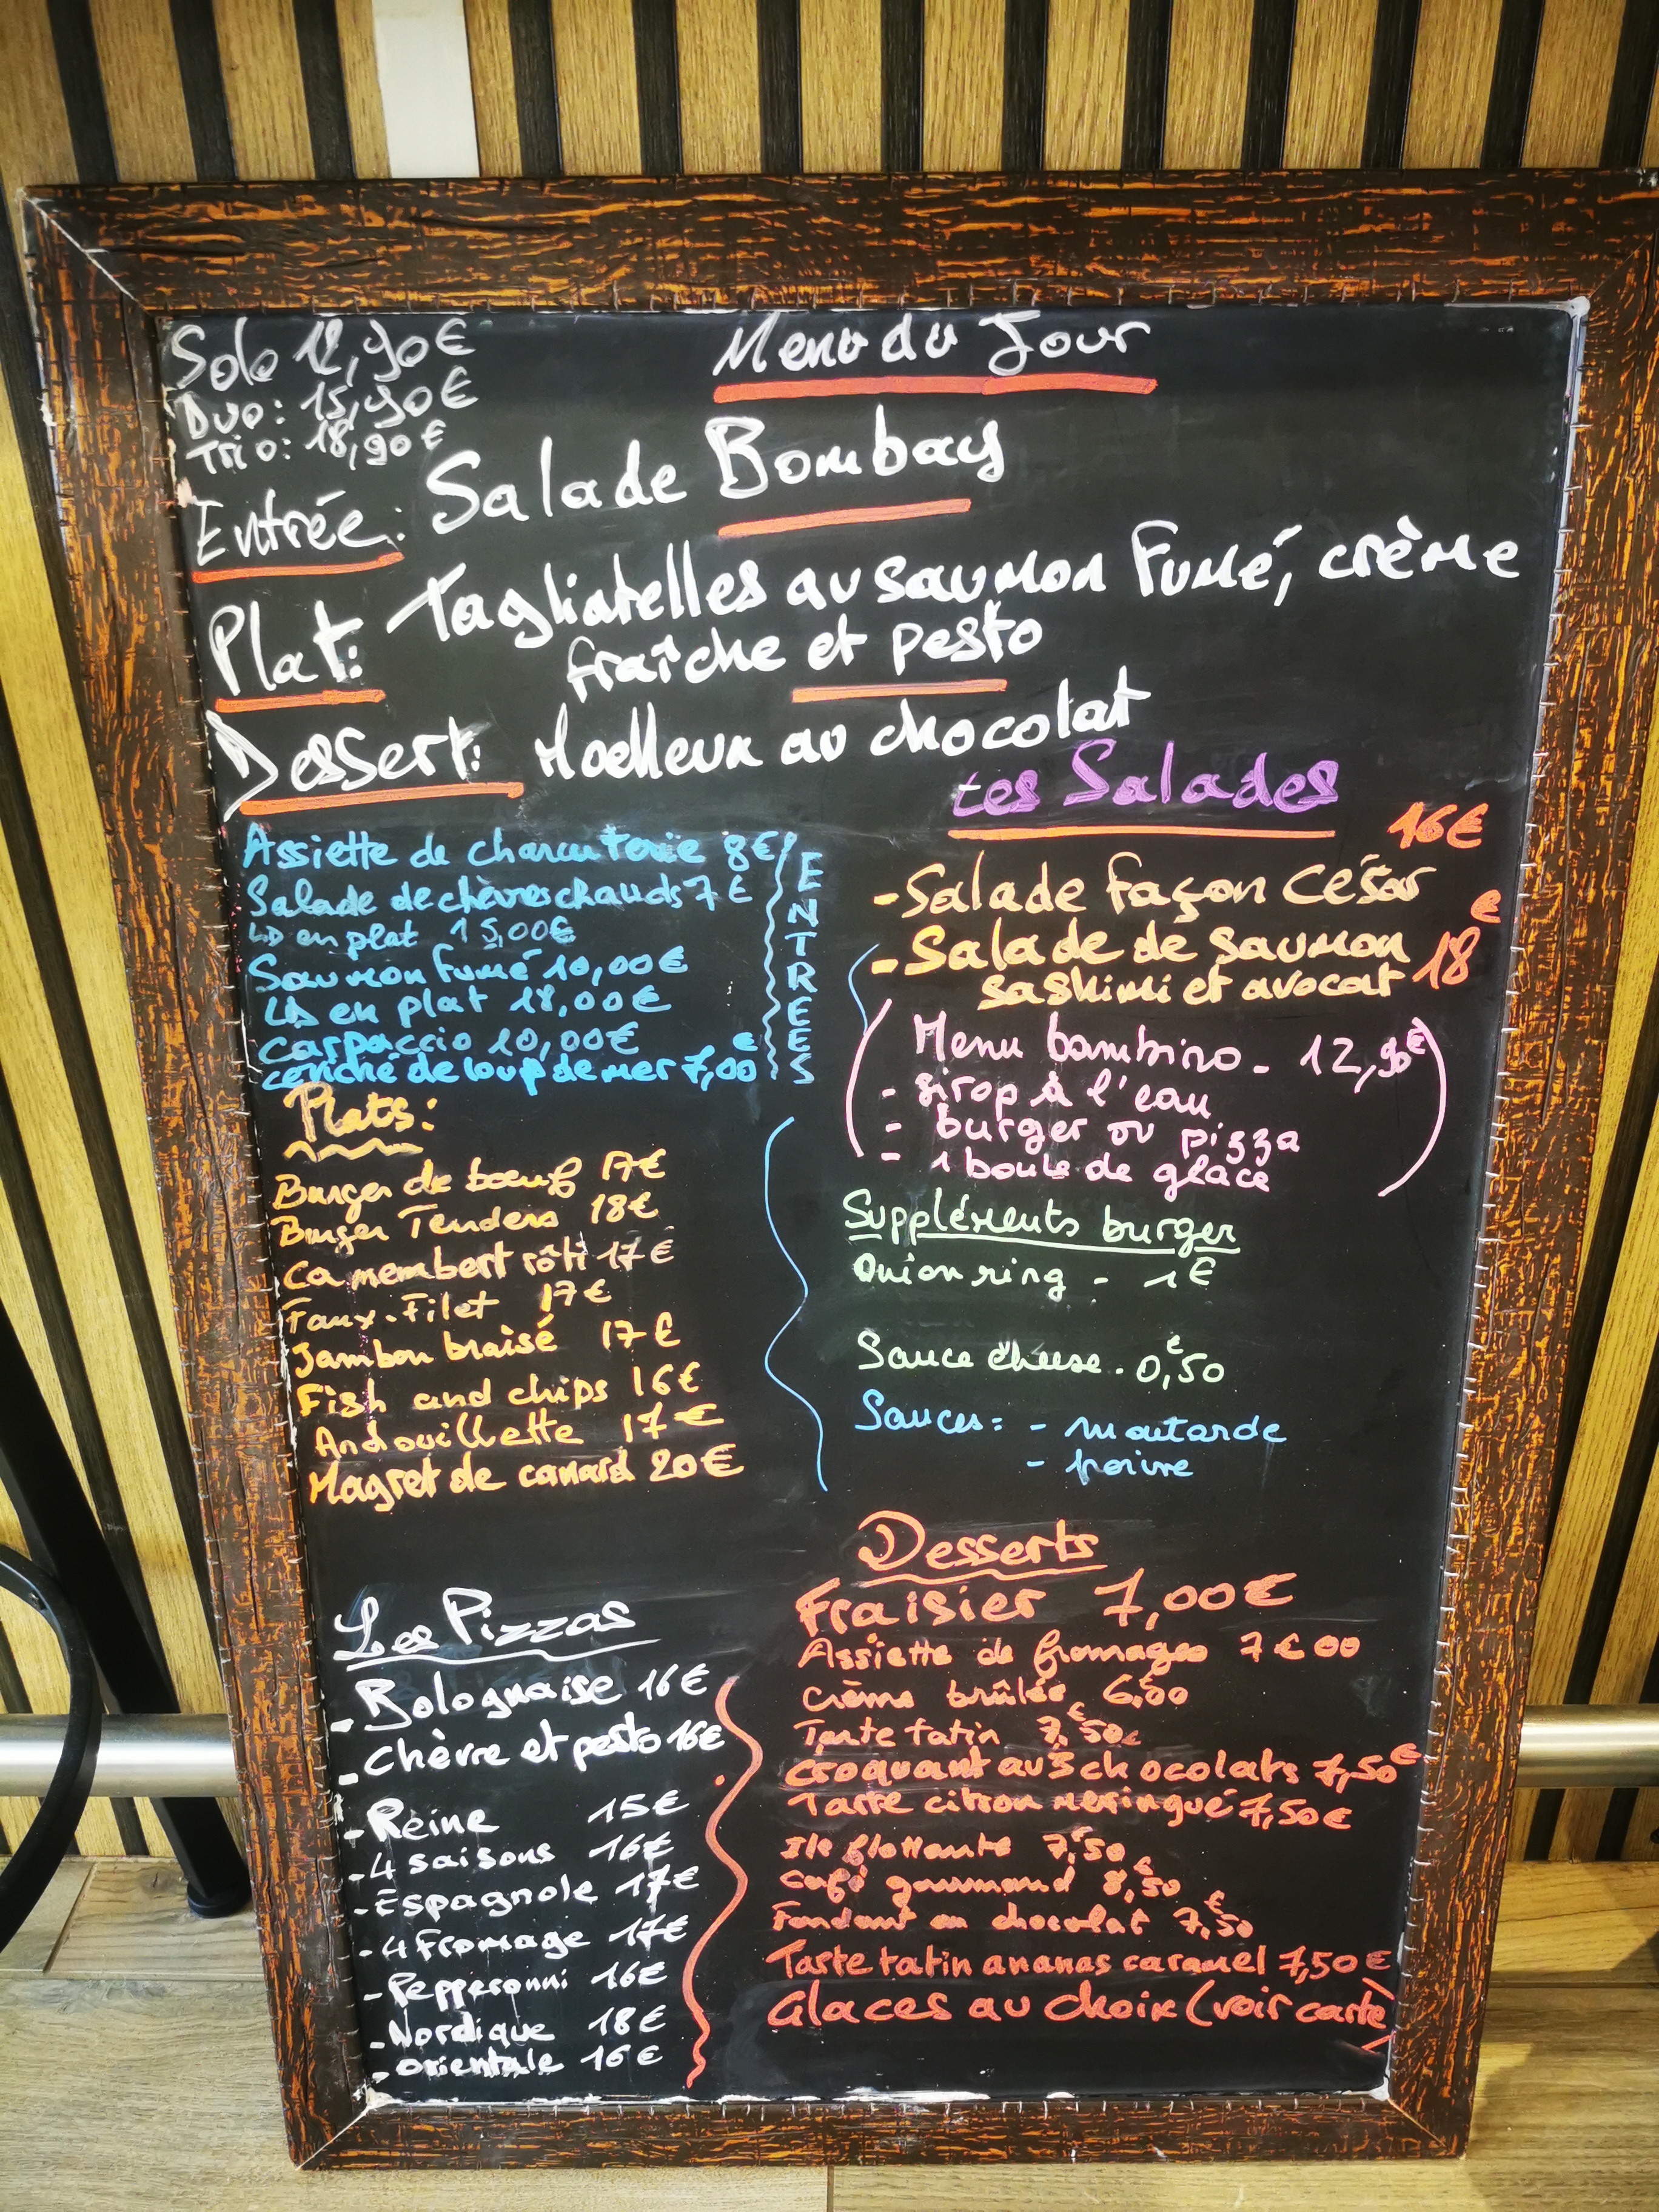 Menu du Jour
Solo 12,90€
Duo: 15,90€
Trio: 18,90€
Entrée: Salade Bombay
Plat: Tagliatelles au saumon Fumé, crème
fraîche et pesto
Dessert: Moelleux au chocolat
Assiette de charcuterie 8€
Salade de chèvres chauds 7€
↳ en plat 15,00€
Saumon fumé 10,00€
↳ en plat 18,00€
carpaccio 10,00€
céviché de loup de mer 7,00€
ENTREES
Plats:
Burger de bœuf 17€
Burger Tenders 18€
Camembert rôti 17€
Faux-Filet 17€
Jambon braisé 17€
Fish and chips 16€
Andouillette 17€
Magret de canard 20€
Les Pizzas
- Bolognaise 16€
- Chèvre et pesto 16€
- Reine 15€
- 4 saisons 16€
- Espagnole 17€
- 4 Fromage 17€
- Pepperonni 16€
- Nordique 18€
- orientale 16€
Les Salades
- Salade façon César 16€
- Salade de saumon
sashimi et avocat 18€
(Menu bambino - 12,90€)
- sirop à l'eau
- burger ou pizza
- 1 boule de glace
Suppléments burger
Onion ring - 1€
Sauce cheese - 0,50€
Sauces: - moutarde
- poivre
Desserts
Fraisier 7,00€
Assiette de fromages 7€00
Crème brûlée 6,50
Tarte tatin 7,50€
Croquant au 3 chocolats 7,50€
Tarte citron meringué 7,50€
Ile flottante 7,50€
Café gourmand 8,50€
Fondant au chocolat 7,50€
Tarte tatin ananas caramel 7,50€
Glaces au choix (voir carte)